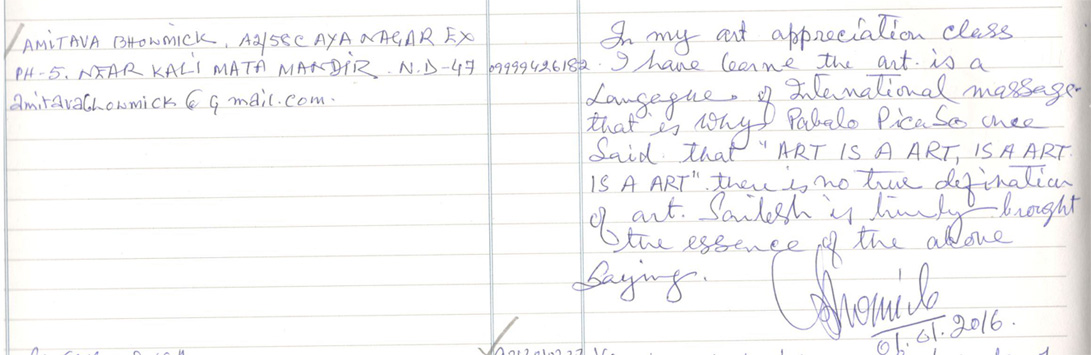 AMITAVA BHOWMICK. A2/58C AYA NAGAR EX
PH-5. NEAR KALI MATA MANDIR. N.D-47
amitavabhowmick@gmail.com.
09999426182.
In my art appreciation class
I have learne the art. is a
Langague of International massage.
that is why Pabalo PicaSo once
Said that "ART IS A ART, IS A ART.
IS A ART". there is no true defination
of art. Sailesh is brought
the essence of the above
Saying.
Bhowmick
01.01.2016.